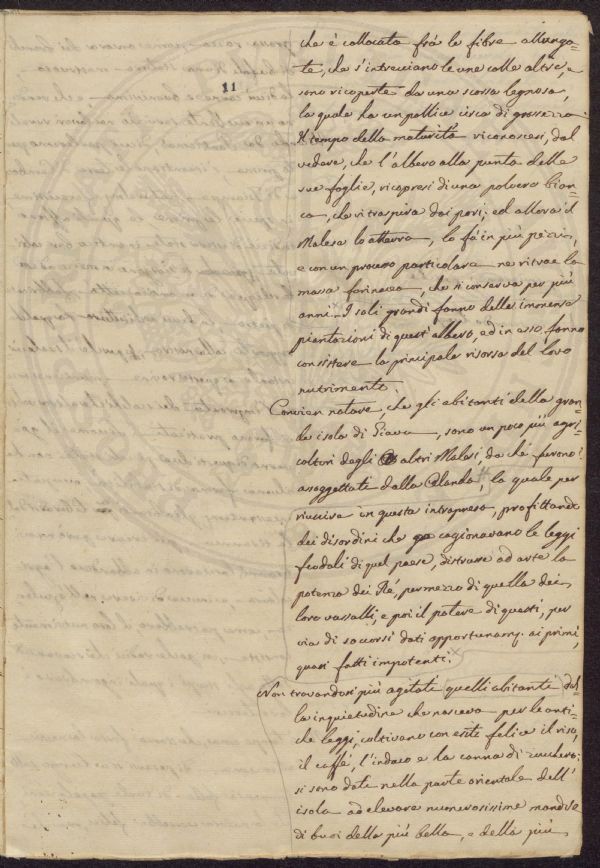 11
che è collocata frà le fibre allunga=
te, che s'intrecciano le une colle altre, e
sono ricoperte da una scorza legnosa,
la quale ha un pollice circa di grossezza.
Il tempo della maturità riconoscesi, dal
vedere, che l'albero alla punta delle
sue foglie, ricopresi di una polvere bian=
ca, che vi traspira dai pori; ed allora il
Malese lo atterra, lo fà in più pezzi,
e con un processo particolare ne ritrae la
massa farinacea, che si conserva per più
anni. I soli grandi fanno delle immense
piantazioni di quest'albero, ed in esso fanno
consistere la principale risorsa del loro
nutrimento.
Convien notare, che gli abitanti della gran=
de isola di Giava, sono un poco più agri=
coltori degli altri Malesi, da chè furono
assoggettati dalla Olanda, la quale per
riuscire in questa intrapresa, profittando
dei disordini che cagionavano le leggi
feodali di quel paese, distrusse ad arte la
potenza dei Rè, per mezzo di quella dei
loro vassalli, e poi il potere di questi, per
via di soccorsi dati opportunam. ai primi,
quasi fatti impotenti.
Non trovandosi più agitati quelli abitanti dal=
la inquietudine che nasceva per le anti=
che leggi, coltivano con esito felice il riso,
il caffè, l'indaco e la canna di zucchero:
si sono dati nella parte orientale dell'
isola ad elevare numerosissime mandre
di buoi della più bella, e della più